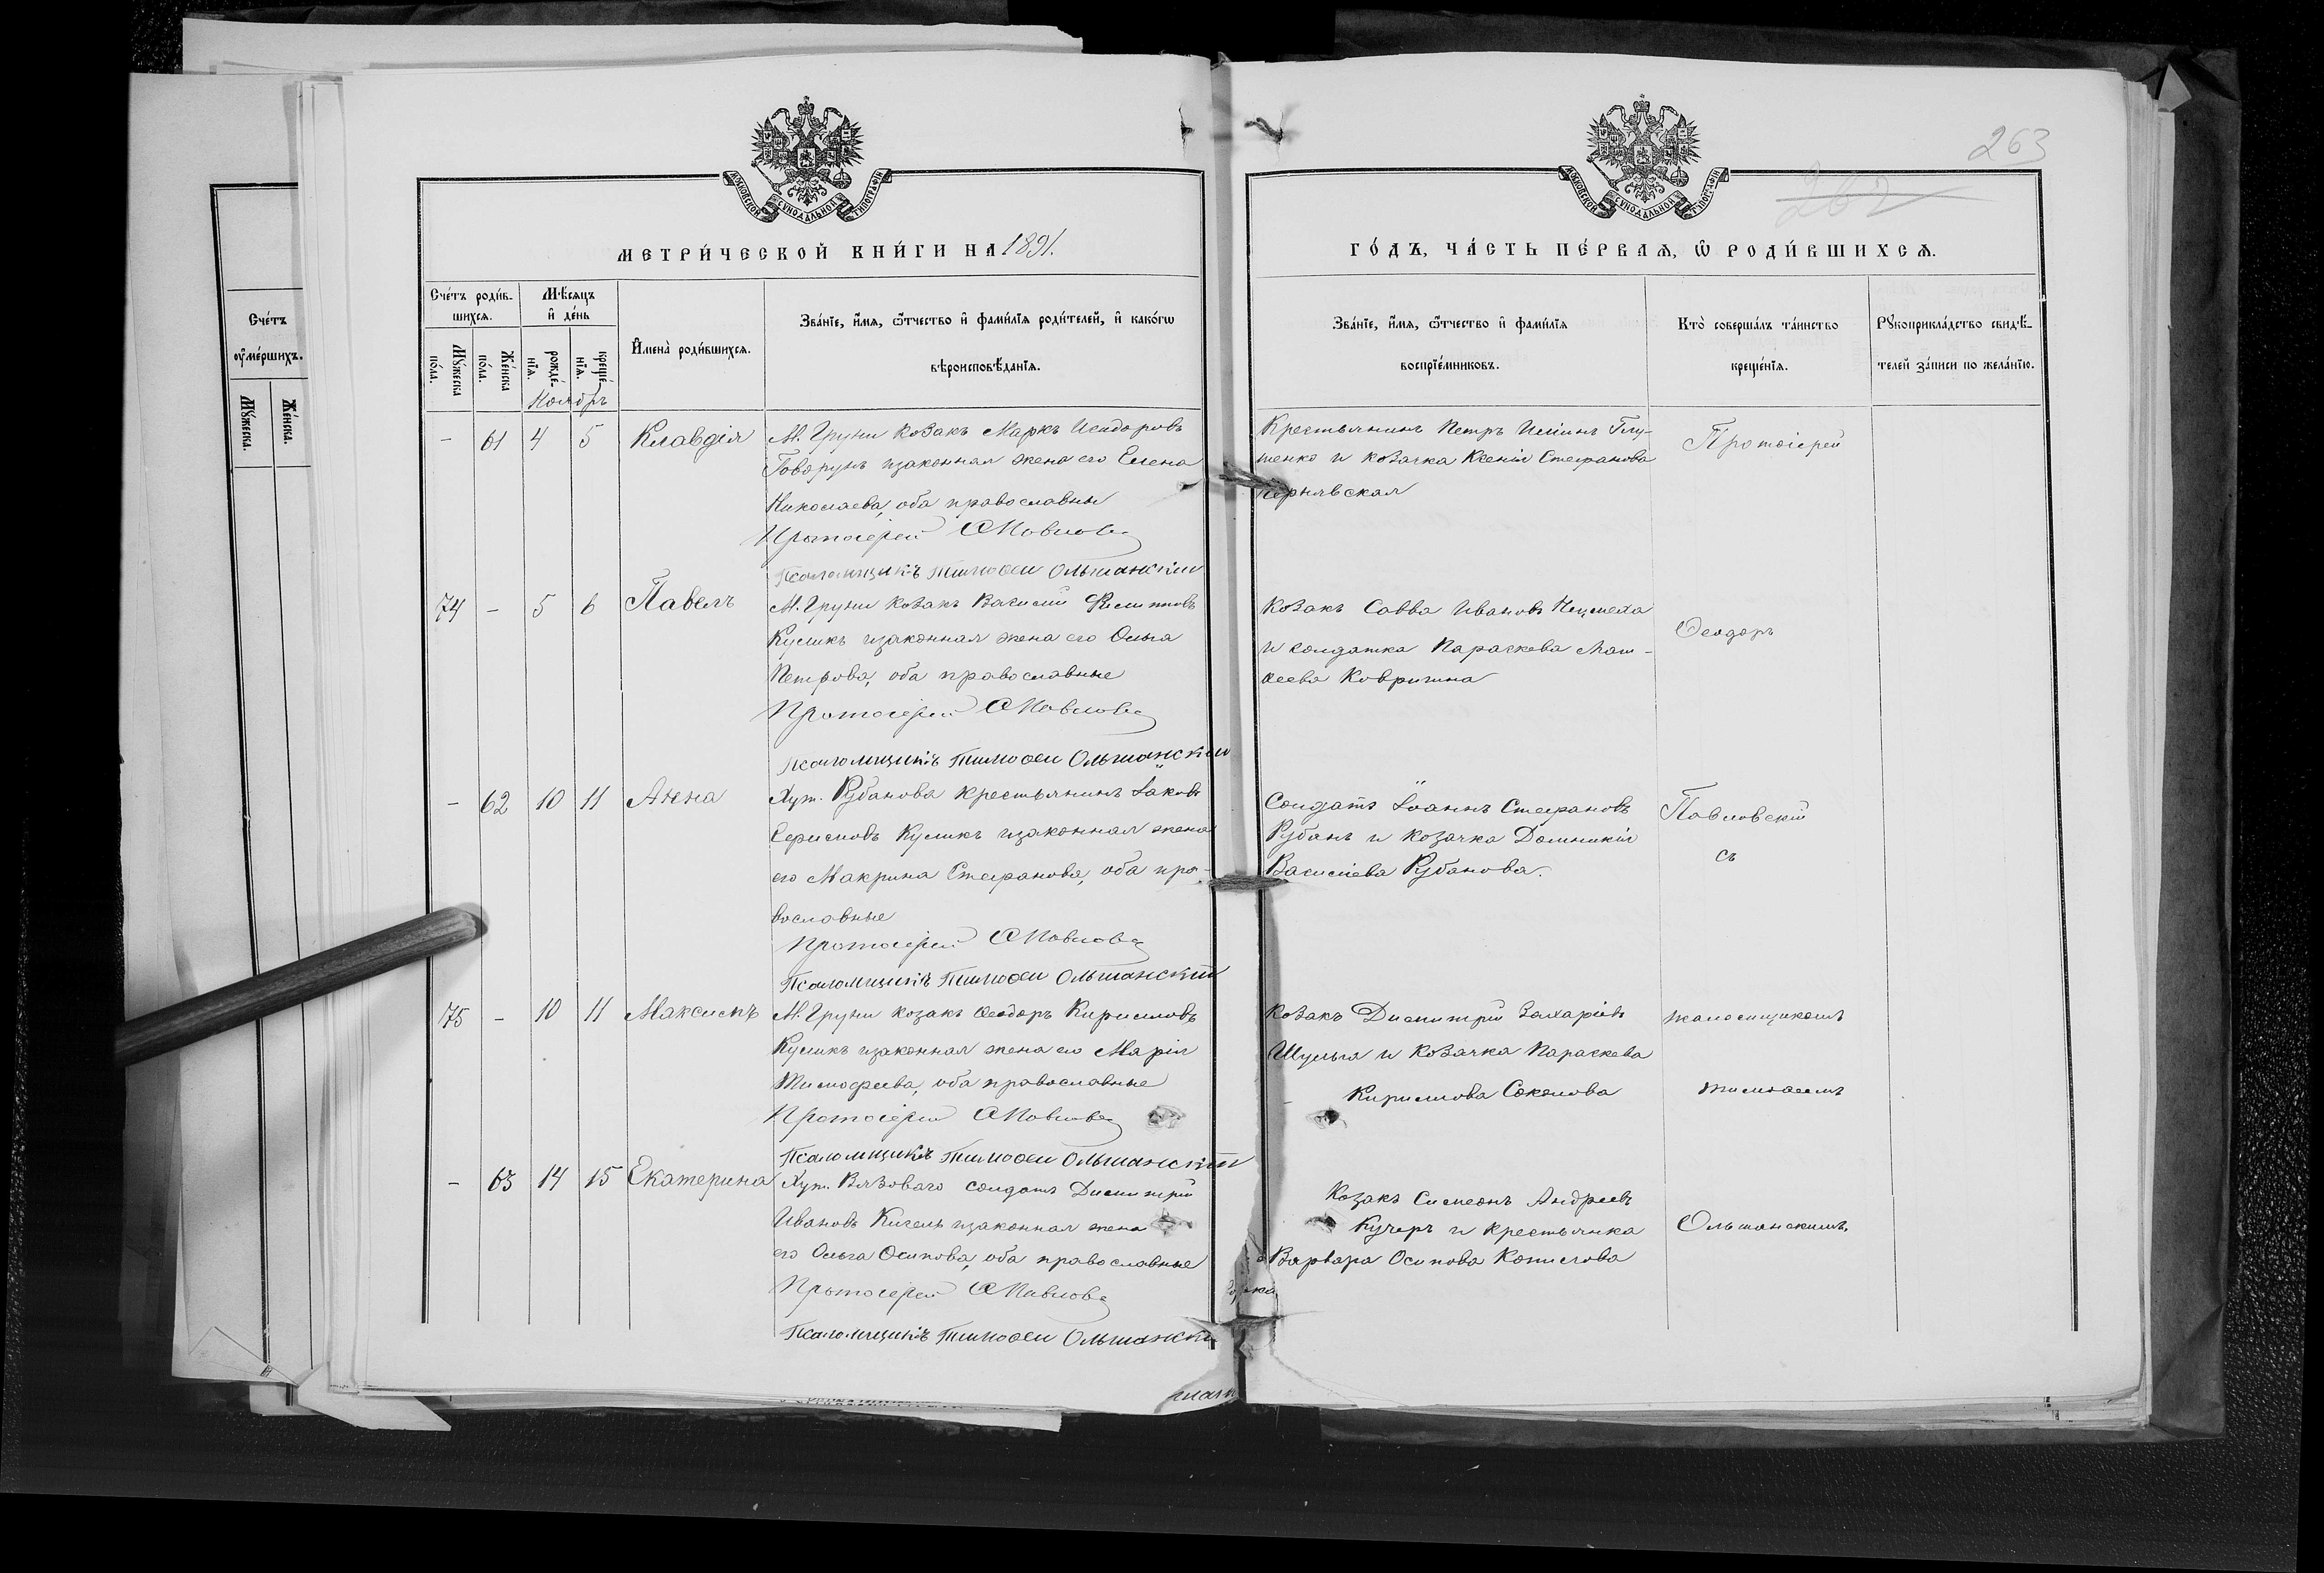 263
262
МОСКОВСКОЙ СѴНОДАЛЬНОЙ ТИПОГРАФІИ
МОСКОВСКОЙ СѴНОДАЛЬНОЙ ТИПОГРАФІИ
МЕТРИ́ЧЕСКОЙ КНИ́ГИ НА 1891.
ГО́ДЪ, ЧА́СТЬ ПЕ́РВАЯ, Ѿ РОДИ́ВШИХСЯ.
Сче́тъ
оу҆ме́ршихъ.
Мꙋ́жеска.
Же́нска.
Сче́тъ роди́в-
шихся.
Мѣ́сяцъ
и҆ де́нь
Мꙋ́жеска по́ла.
Же́нска по́ла.
рожде́-нїя.
креще́-нїя.
И҆мена̀ роди́вшихся.
Зва́нїе, и҆́мя, ѻ҆́тчество и҆ фами́лїя роди́телей, и҆ како́гѡ
вѣроисповѣ́данїя.
Зва́нїе, и҆́мя, ѻ҆́тчество и҆ фами́лїя
воспрїе́мниковъ.
Кто̀ соверша́лъ та́инство
креще́нїя.
Рꙋкоприкла́дство свидѣ́-
телей за́писи по жела́нїю.
Ноябрь
- 61 4 5 Клавдія М. Груни козакъ Маркъ Исидоровъ
Говорунъ изаконная жена его Елена
Николаева, оба православны
Протоіерей Ѳ Павлов
Псаломщикъ Тимоѳей Ольшанскій
Крестьянинъ Петръ Глу-
шенко и козачка Ксенія Стефанова
Протоіерей
74 - 5 6 Павелъ М. Груни козакъ Василій Филиповъ
Куликъ изаконная жена его Ольга
Петрова, оба православные
Протоіерей Ѳ Павлов
Псаломщикъ Тимоѳей Ольшанскій
Козакъ Савва Ивановъ
и солдатка Параскева Мат-
ѳеева Ковригина
Ѳеодоръ
- 62 10 11 Анна Хут. Рубанова крестьянинъ Іаковъ
Ефремовъ Куликъ изаконная жена
его Макрина Стефанова, оба пра-
вославные
Протоіерей Ѳ Павлов
Псаломщикъ Тимоѳей Ольшанскій
Солдатъ Іоаннъ Стефановъ
Рубанъ и козачка Домникія
Василіева Рубанова.
Павловскій
съ
75 - 10 11 Максимъ М. Груни козакъ Ѳеодоръ Кириловъ
Куликъ изаконная жена его Марія
Тимофеева, оба православные
Протоіерей Ѳ Павлов
Псаломщикъ Тимоѳей Ольшанскій
Козакъ Димитрій Захаріевъ
Шульга и козачка Параскева
Кирилова Соколова
псаломщикомъ
Тимоѳеемъ
- 63 14 15 Екатерина Хут. Вязоваго солдатъ Димитрій
Ивановъ Кисель изаконная жена
его Ольга Осипова, оба православные
Протоіерей Ѳ Павлов
Псаломщикъ Тимоѳей Ольшанскій
Козакъ Симеонъ Андреевъ
Кучеръ и крестьянка
Варвара Осипова
Ольшанскимъ.